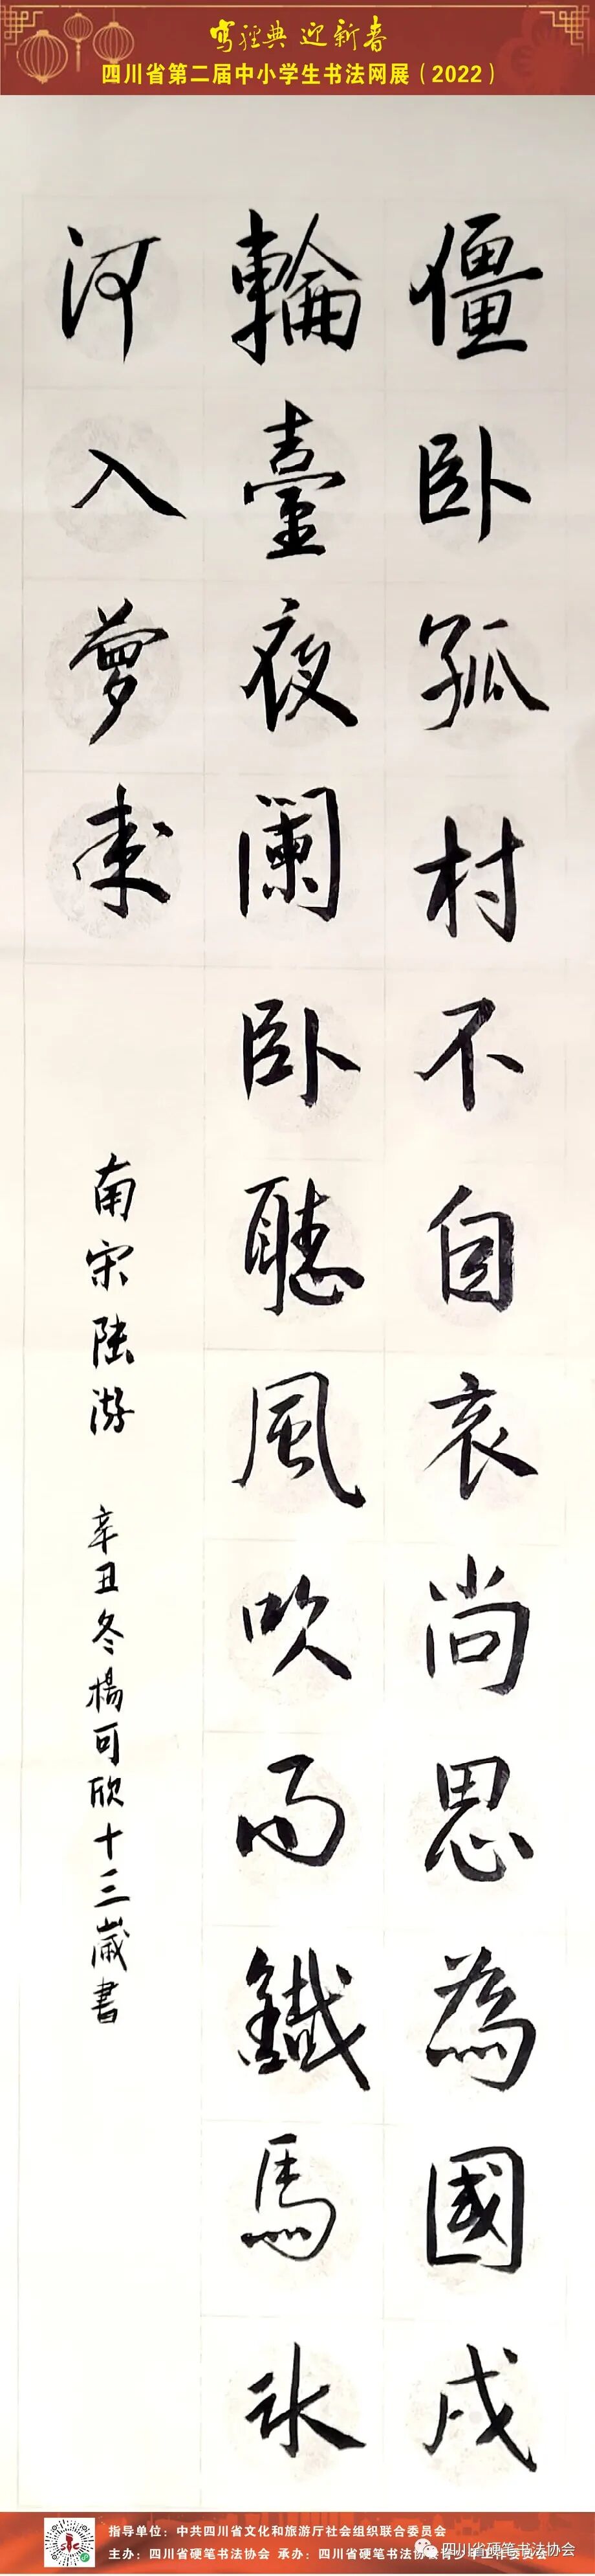 写经典 迎新春
四川省第二届中小学生书法网展（2022）
僵卧孤村不自哀尚思為國戍
輪臺夜闌卧聽風吹雨鐵馬冰
河入夢來
南宋陸游 辛丑冬楊可欣十三歲書
指导单位：中共四川省文化和旅游厅社会组织联合委员会
主办：四川省硬笔书法协会 承办：四川省硬笔书法协会青少年工作委员会
四川省硬笔书法协会